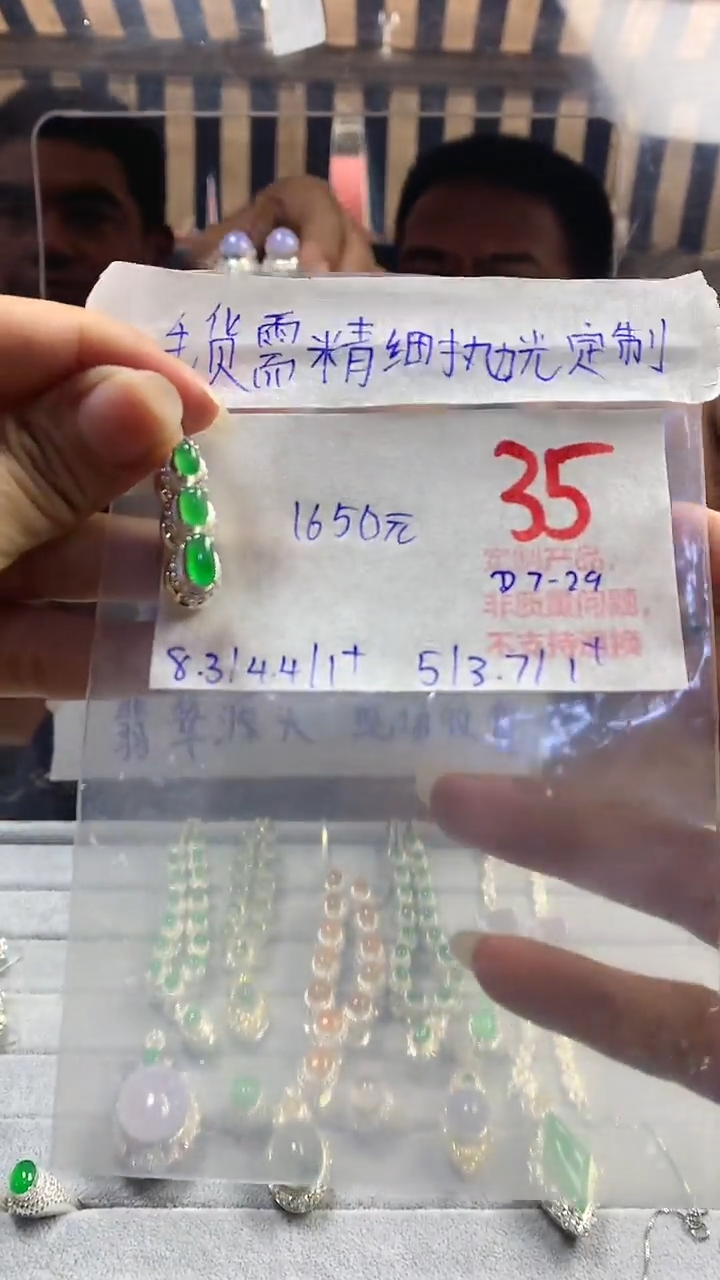 毛货需精细抛光定制
35
1650元
定制产品，
D7-29
非质量问题，
不支持退换
8.3/4.4/1+ 5/3.7/1+
翡翠源头